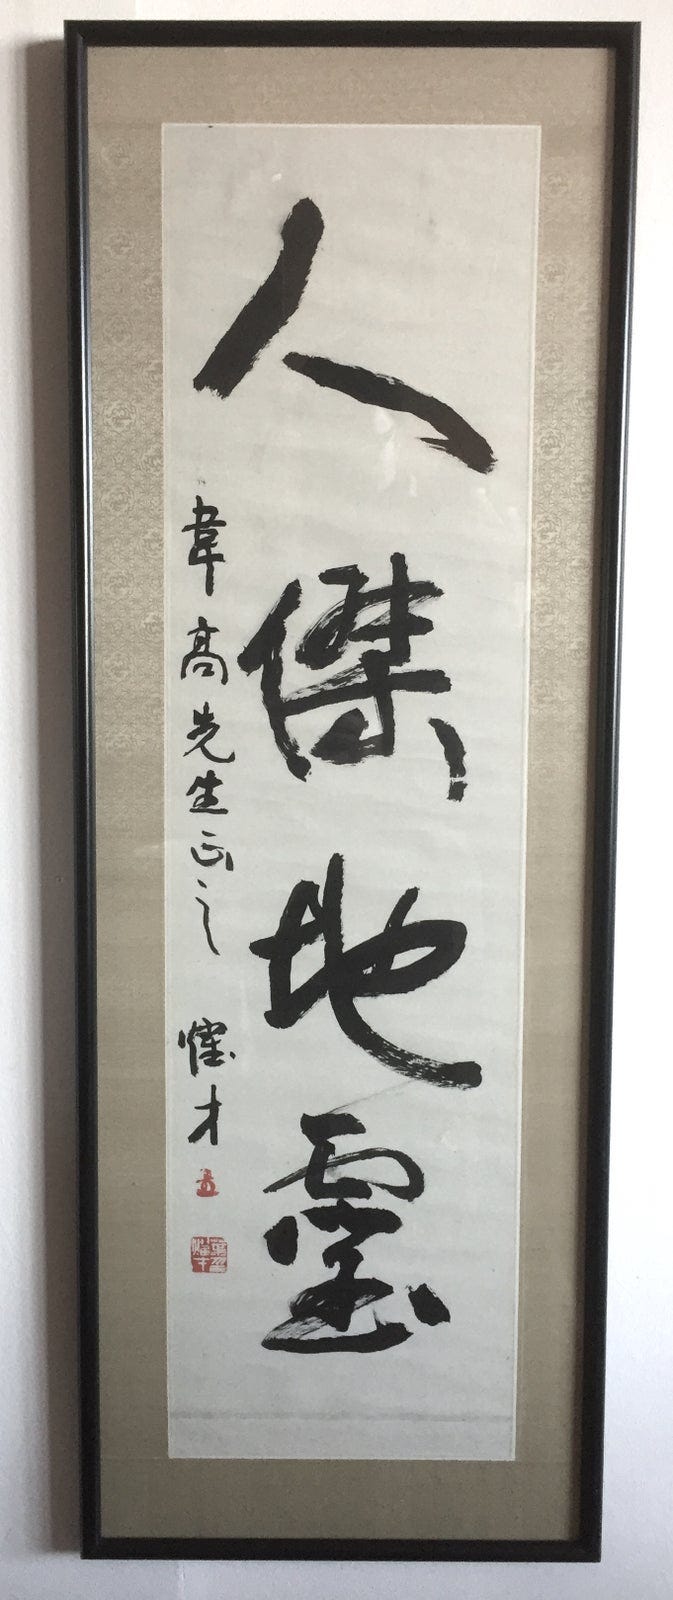 人傑地靈
韋高先生正之 耀才